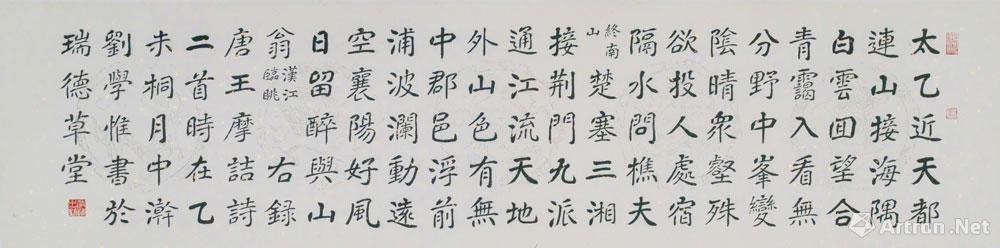 太乙近天都
連山接海隅
白雲囬望合
青靄入看無
分野中峯變
陰晴眾壑殊
欲投人處宿
隔水問樵夫
終南山 楚塞三湘
接荆門九派
通江流天地
外山色有無
中郡邑浮前
浦波瀾動遠
空襄陽好風
日留醉與山
翁 漢江臨眺 右録
唐王摩詰詩
二首時在乙
未桐月中澣
劉學惟書於
瑞德草堂
Artron.Net